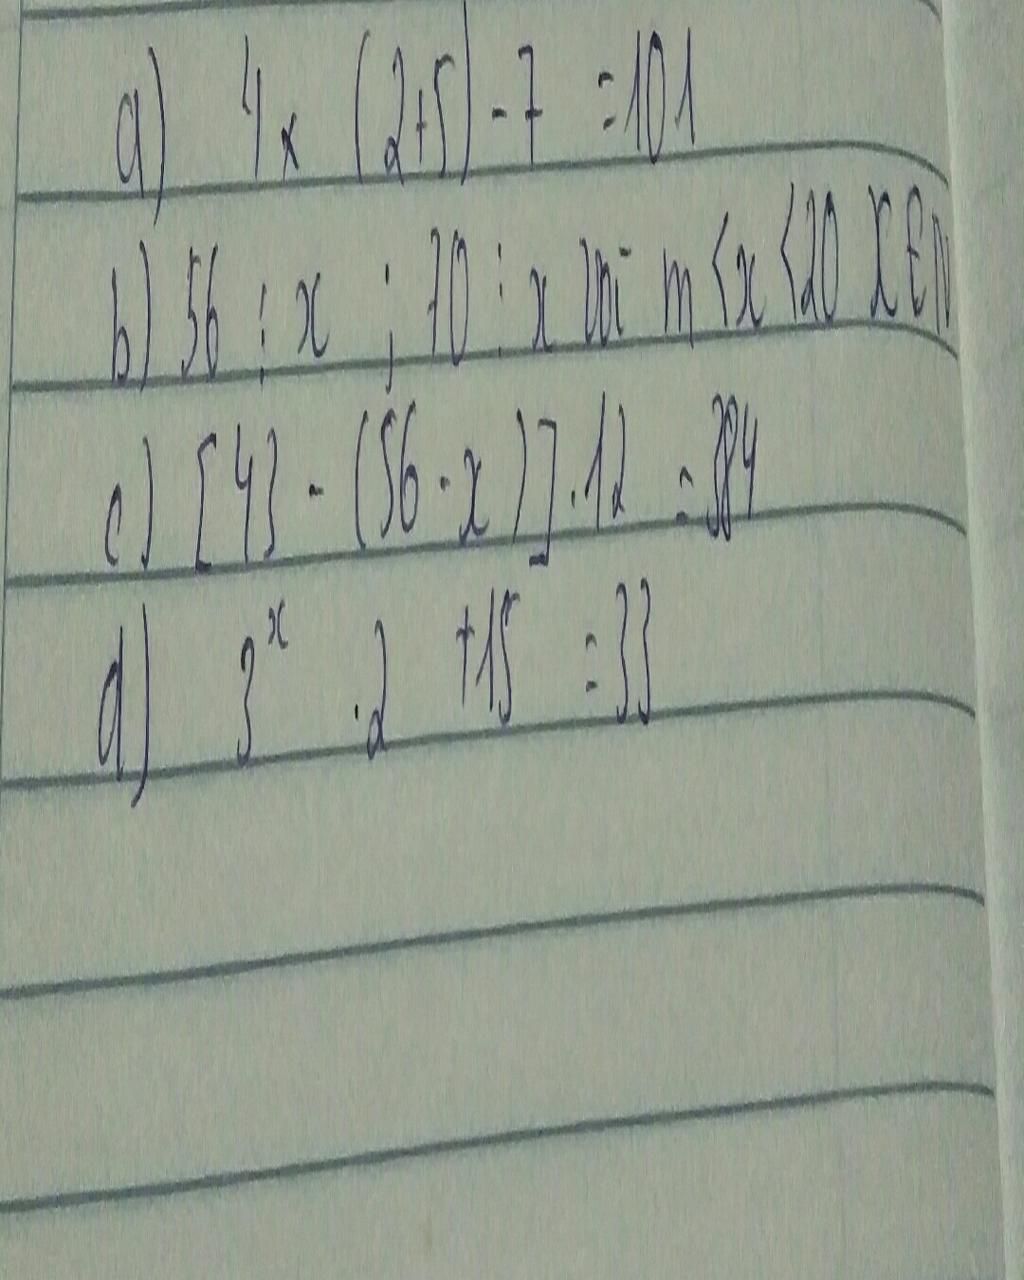 a) 4x (2+5) - 7 = 101
b) 56 ⋮ x ; 70 ⋮ x với m < x < 20 x ∈ N
c) [43 - (56 - x)] . 12 = 384
d) 3ˣ . 2 + 15 = 33